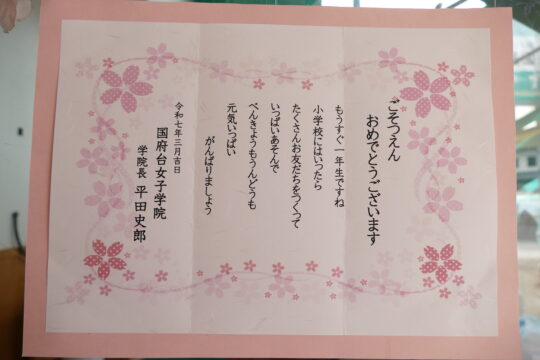 ごそつえん
おめでとうございます
もうすぐ一年生ですね
小学校にはいったら
たくさんお友だちをつくって
いっぱいあそんで
べんきょうもうんどうも
元気いっぱい
がんばりましょう
令和七年三月吉日
国府台女子学院
学院長 平田史郎